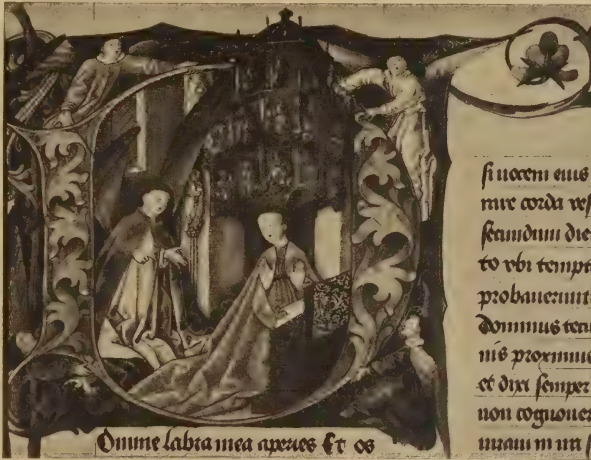 Omine labia mea aperies Et os
si uocem eius
rare corda ves
secundum die
to vbi tempt
probauerunt
nis proximus
et dixi semper
non cognouer
iuraui in ira